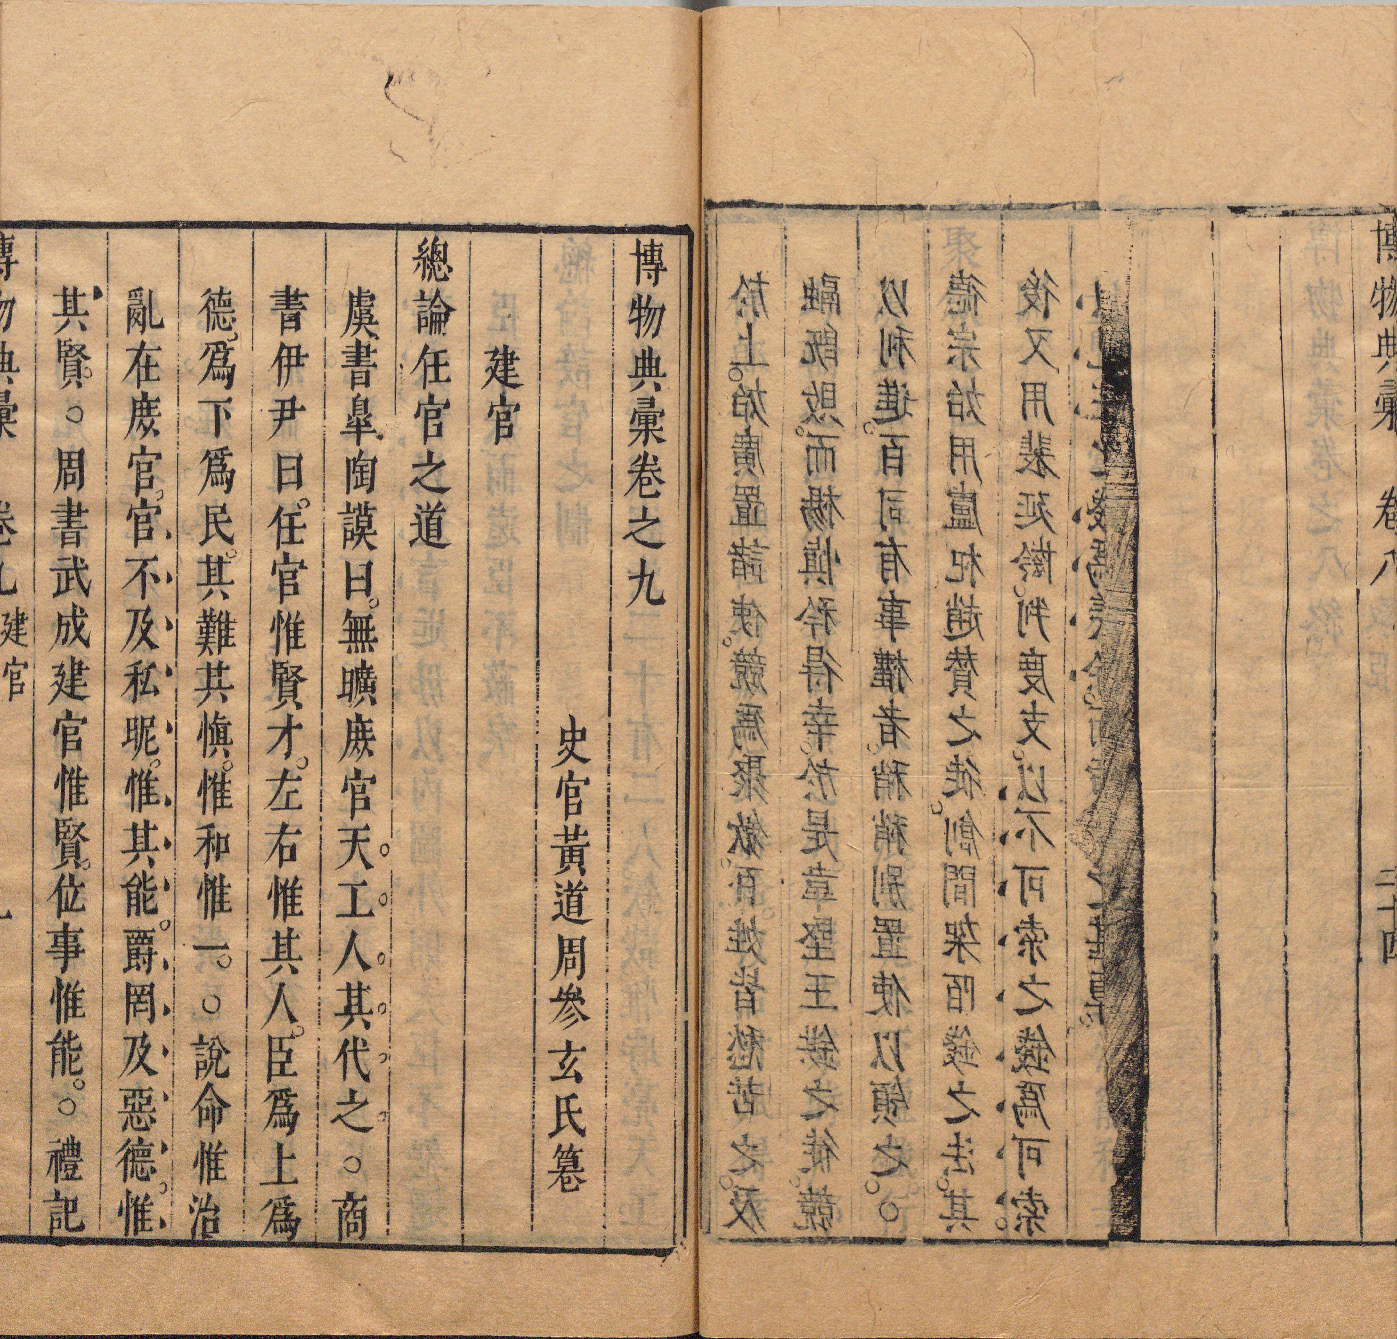 博物典彙 卷八 二十四
於上。始廣置諸使。競爲聚斂。百姓皆愁苦之。及
融既敗。而楊慎矜得幸。於是韋堅王鉷之徒。競
以利進。百司有事權者。稍稍别置使以領之。○
德宗始用盧杞趙贊之徒。創間架陌錢之法。其
後又用裴延齡。判度支。以不可索之錢爲可索
博物典彙卷之九
史官黃道周參玄氏纂
建官
總論任官之道
虞書臯陶謨曰。無曠庶官天工人其代之○商
書伊尹曰。任官惟賢才。左右惟其人。臣爲上爲
德。爲下爲民。其難其愼。惟和惟一。○說命惟治
亂在庶官。官不及私昵。惟其能。爵罔及惡德。惟
其賢。○周書武成建官惟賢。位事惟能。○禮記
博物典彙 卷九 建官 一